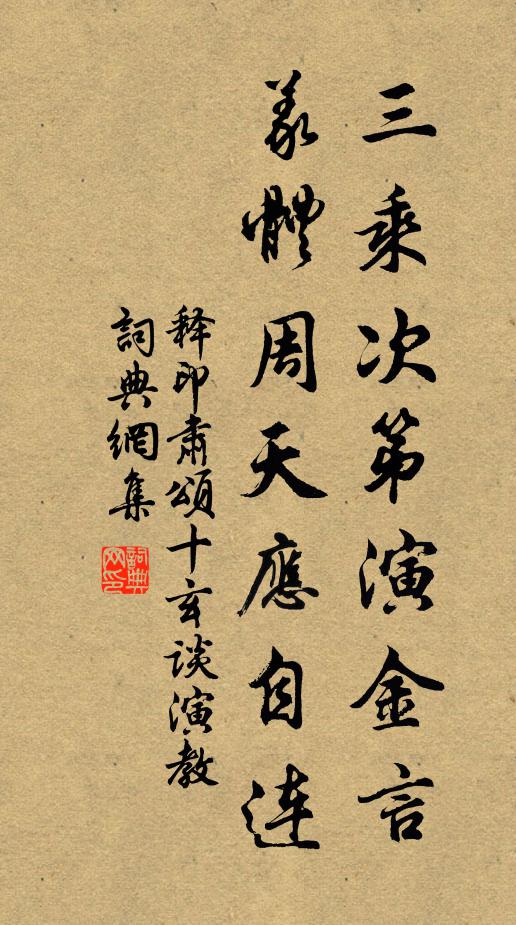 三乘次第演金言
義體周天應自连
释印肅頌十玄谈演教
詞典網集
詞典网印